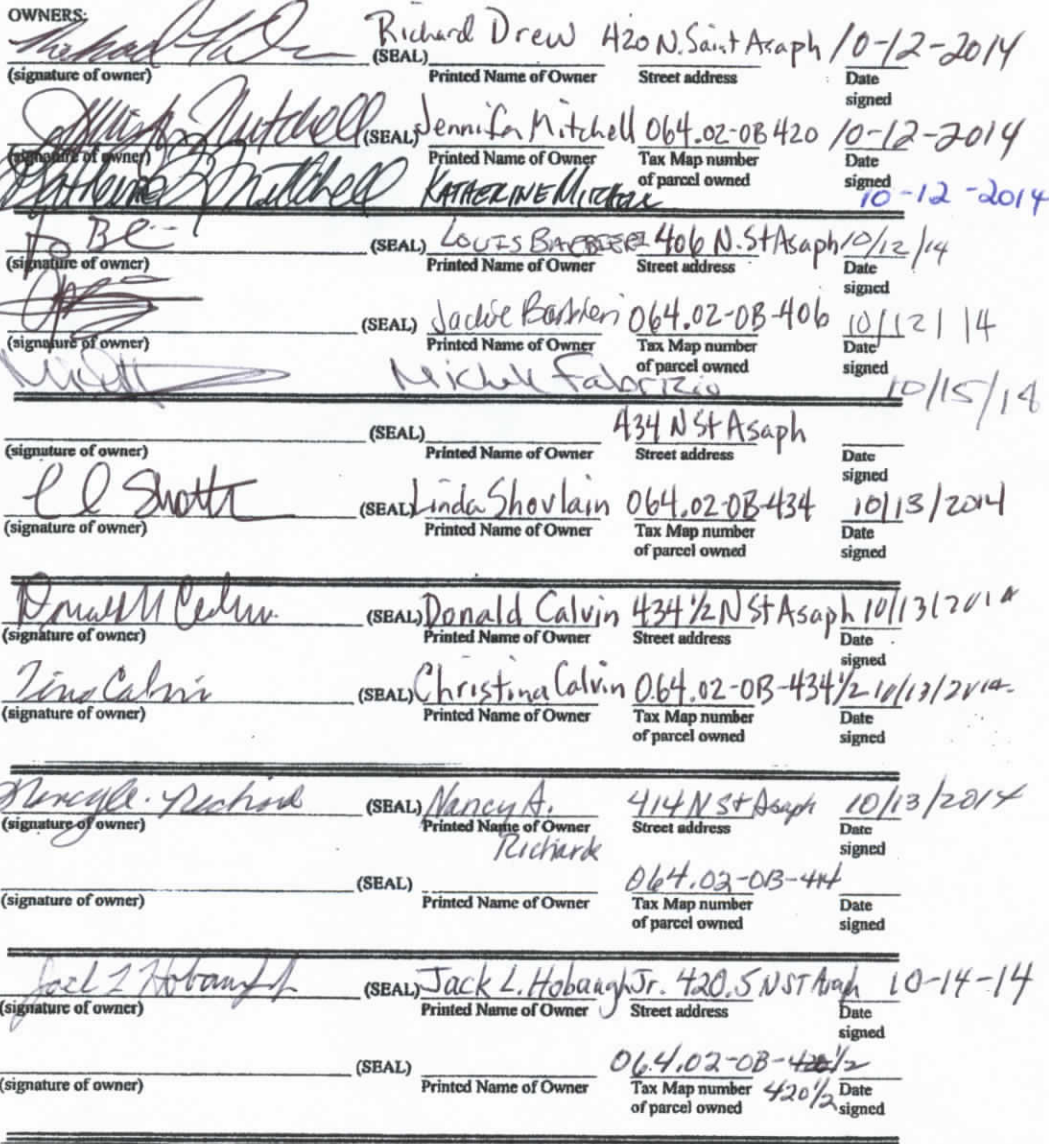 OWNERS:
(SEAL) Richard Drew 420 N. Saint Asaph 10-12-2014
(signature of owner) Printed Name of Owner Street address Date
signed
Mitchell (SEAL) Jennifer Mitchell 064.02-0B 420 10-12-2014
(signature of owner) Printed Name of Owner Tax Map number Date
of parcel owned signed
Katherine Mitchell KATHERINE MITCHELL 10-12-2014
(SEAL) LOUIS 406 N. St Asaph 10/12/14
(signature of owner) Printed Name of Owner Street address Date
signed
(SEAL) Jackie Barbieri 064.02-0B-406 10/12/14
(signature of owner) Printed Name of Owner Tax Map number Date
of parcel owned signed
Fabrizio 10/15/14
(SEAL) 434 N St Asaph
(signature of owner) Printed Name of Owner Street address Date
signed
(SEAL) Linda Shovlain 064.02-0B-434 10/13/2014
(signature of owner) Printed Name of Owner Tax Map number Date
of parcel owned signed
(SEAL) Donald Calvin 434 1/2 N St Asaph 10/13/2014
(signature of owner) Printed Name of Owner Street address Date
signed
Tina Calvin (SEAL) Christina Calvin 064.02-0B-434 1/2 10/13/2014
(signature of owner) Printed Name of Owner Tax Map number Date
of parcel owned signed
(SEAL) Nancy A. 414 N St Asaph 10/13/2014
(signature of owner) Printed Name of Owner Street address Date
Richards signed
(SEAL) 064.02-0B-414
(signature of owner) Printed Name of Owner Tax Map number Date
of parcel owned signed
(SEAL) Jack L. Hobaugh Jr. 420.5 N ST Asaph 10-14-14
(signature of owner) Printed Name of Owner Street address Date
signed
(SEAL) 064.02-0B-420 1/2
(signature of owner) Printed Name of Owner Tax Map number 420 1/2 Date
of parcel owned signed